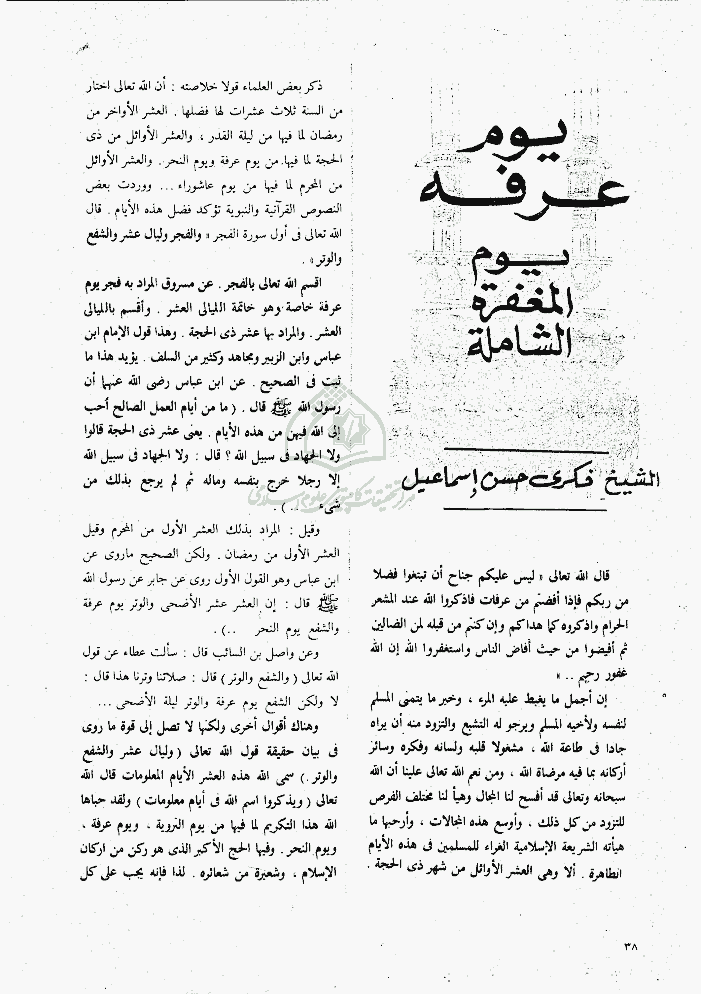 يوم
عرفه
يوم
المغفرة
الشاملة
الشيخ فكرى حسن إسماعيل
قال الله تعالى « ليس عليكم جناح أن تبتغوا فضلا
من ربكم فإذا أفضتم من عرفات فاذكروا الله عند المشعر
الحرام واذكروه كما هداكم وإن كنتم من قبله لمن الضالين
ثم أفيضوا من حيث أفاض الناس واستغفروا الله إن الله
غفور رحيم .. »
إن أجمل ما يغبط عليه المرء ، وخير ما يتمنى المسلم
لنفسه ولأخيه المسلم ويرجو له التشبع والتزود منه أن يراه
جادا فى طاعة الله ، مشغولا قلبه ولسانه وفكره وسائر
أركانه بما فيه مرضاة الله ، ومن نعم الله تعالى علينا أن الله
سبحانه وتعالى قد أفسح لنا المجال وهيأ لنا مختلف الفرص
للتزود من كل ذلك ، وأوسع هذه المجالات ، وأرحبها ما
هيأته الشريعة الإسلامية الغراء للمسلمين فى هذه الأيام
الطاهرة . ألا وهى العشر الأوائل من شهر ذى الحجة .
ذكر بعض العلماء قولا خلاصته : أن الله تعالى اختار
من السنة ثلاث عشرات لها فضلها . العشر الأواخر من
رمضان لما فيها من ليلة القدر ، والعشر الأوائل من ذى
الحجة لما فيها من يوم عرفة ويوم النحر . والعشر الأوائل
من المحرم لما فيها من يوم عاشوراء ... ووردت بعض
النصوص القرآنية والنبوية تؤكد فضل هذه الأيام . قال
الله تعالى فى أول سورة الفجر « والفجر وليال عشر والشفع
والوتر » .
اقسم الله تعالى بالفجر . عن مسروق المراد به فجر يوم
عرفة خاصة وهو خاتمة الليالى العشر . وأقسم بالليالى
العشر . والمراد بها عشر ذى الحجة . وهذا قول الإمام ابن
عباس وابن الزبير ومجاهد وكثير من السلف . يؤيد هذا ما
ثبت فى الصحيح . عن ابن عباس رضى الله عنهما أن
رسول الله ﷺ قال . ( ما من أيام العمل الصالح أحب
إلى الله فيهن من هذه الأيام . يعنى عشر ذى الحجة قالوا
ولا الجهاد فى سبيل الله ؟ قال : ولا الجهاد فى سبيل الله
إلا رجلا خرج بنفسه وماله ثم لم يرجع بذلك من
شىء .. ) .
وقيل : المراد بذلك العشر الأول من المحرم وقيل
العشر الأول من رمضان . ولكن الصحيح ماروى عن
ابن عباس وهو القول الأول روى عن جابر عن رسول الله
ﷺ قال : إن العشر عشر الأضحى والوتر يوم عرفة
والشفع يوم النحر ..) .
وعن واصل بن السائب قال : سألت عطاء عن قول
الله تعالى ( والشفع والوتر ) قال : صلاتنا وترنا هذا قال :
لا ولكن الشفع يوم عرفة والوتر ليلة الأضحى ...
وهناك أقوال أخرى ولكنها لا تصل إلى قوة ما روى
فى بيان حقيقة قول الله تعالى ( وليال عشر والشفع
والوتر . ) سمى الله هذه العشر الأيام المعلومات قال الله
تعالى ( ويذكروا اسم الله فى أيام معلومات ) ولقد حباها
الله هذا التكريم لما فيها من يوم التروية ، ويوم عرفة ،
ويوم النحر . وفيها الحج الأكبر الذى هو ركن من اركان
الإسلام ، وشعيرة من شعائره . لذا فإنه يجب على كل
٣٨